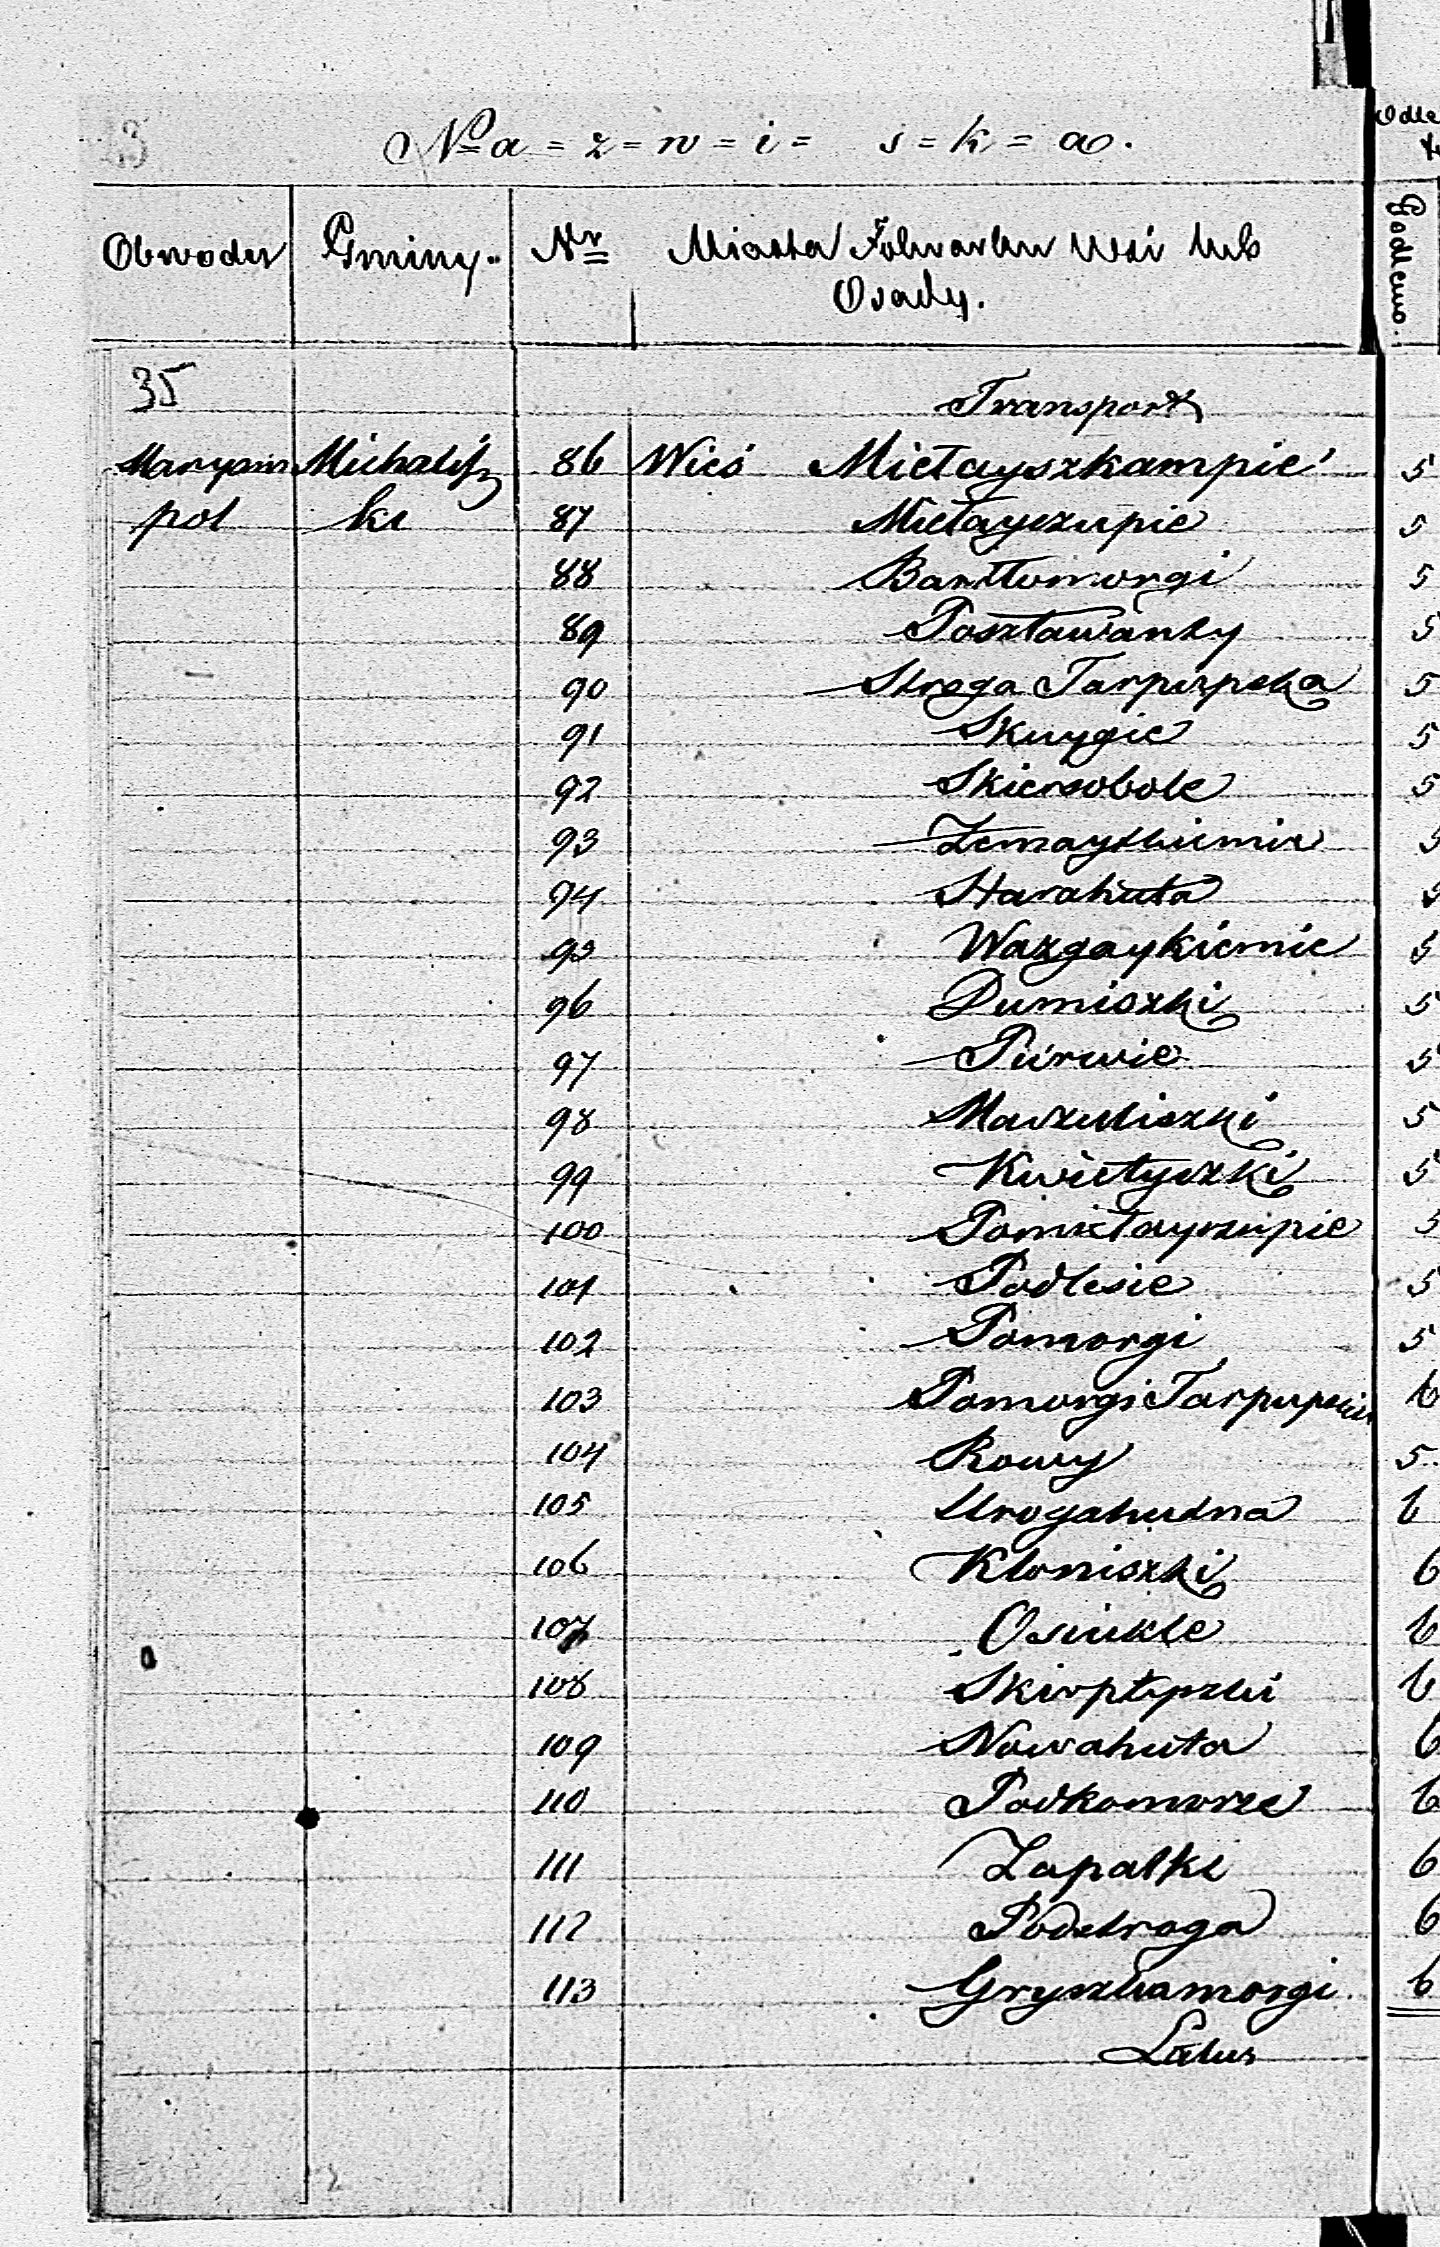 Na = z = w = i = s = k = a.
Odle
Obwodu Gminy. Nr Miasta Folwarku Wsi lub
Osady.
35
Transport
Maryam Michalisz 86 Wieś Mietayszkampie 5
pol ki 87 Mietayszupie 5
88 Bartłomorgi 5
89 Posztawanky 5
90 Stroga Tarpupska 5
91 5
92 Skiersobole 5
93 Zemaytkiemie 5
94 Starahuta 5
95 Wazgaykiemie 5
96 Dumiszki 5
97 Purwie 5
98 Maszuliszki 5
99 Kwietyszki 5
100 Pomietayszupie 5
101 Podlesie 5
102 Pomorgi 5
103 Pomorgi Tarpupskie 6
104 Rowy 5
105 6
106 Kloniszki 6
107 Osiukle 6
108 6
109 Nowahuta 6
110 Podkomorze 6
111 Zapalki 6
112 Podstroga 6
113 Gryszkamorgi 6
Latus